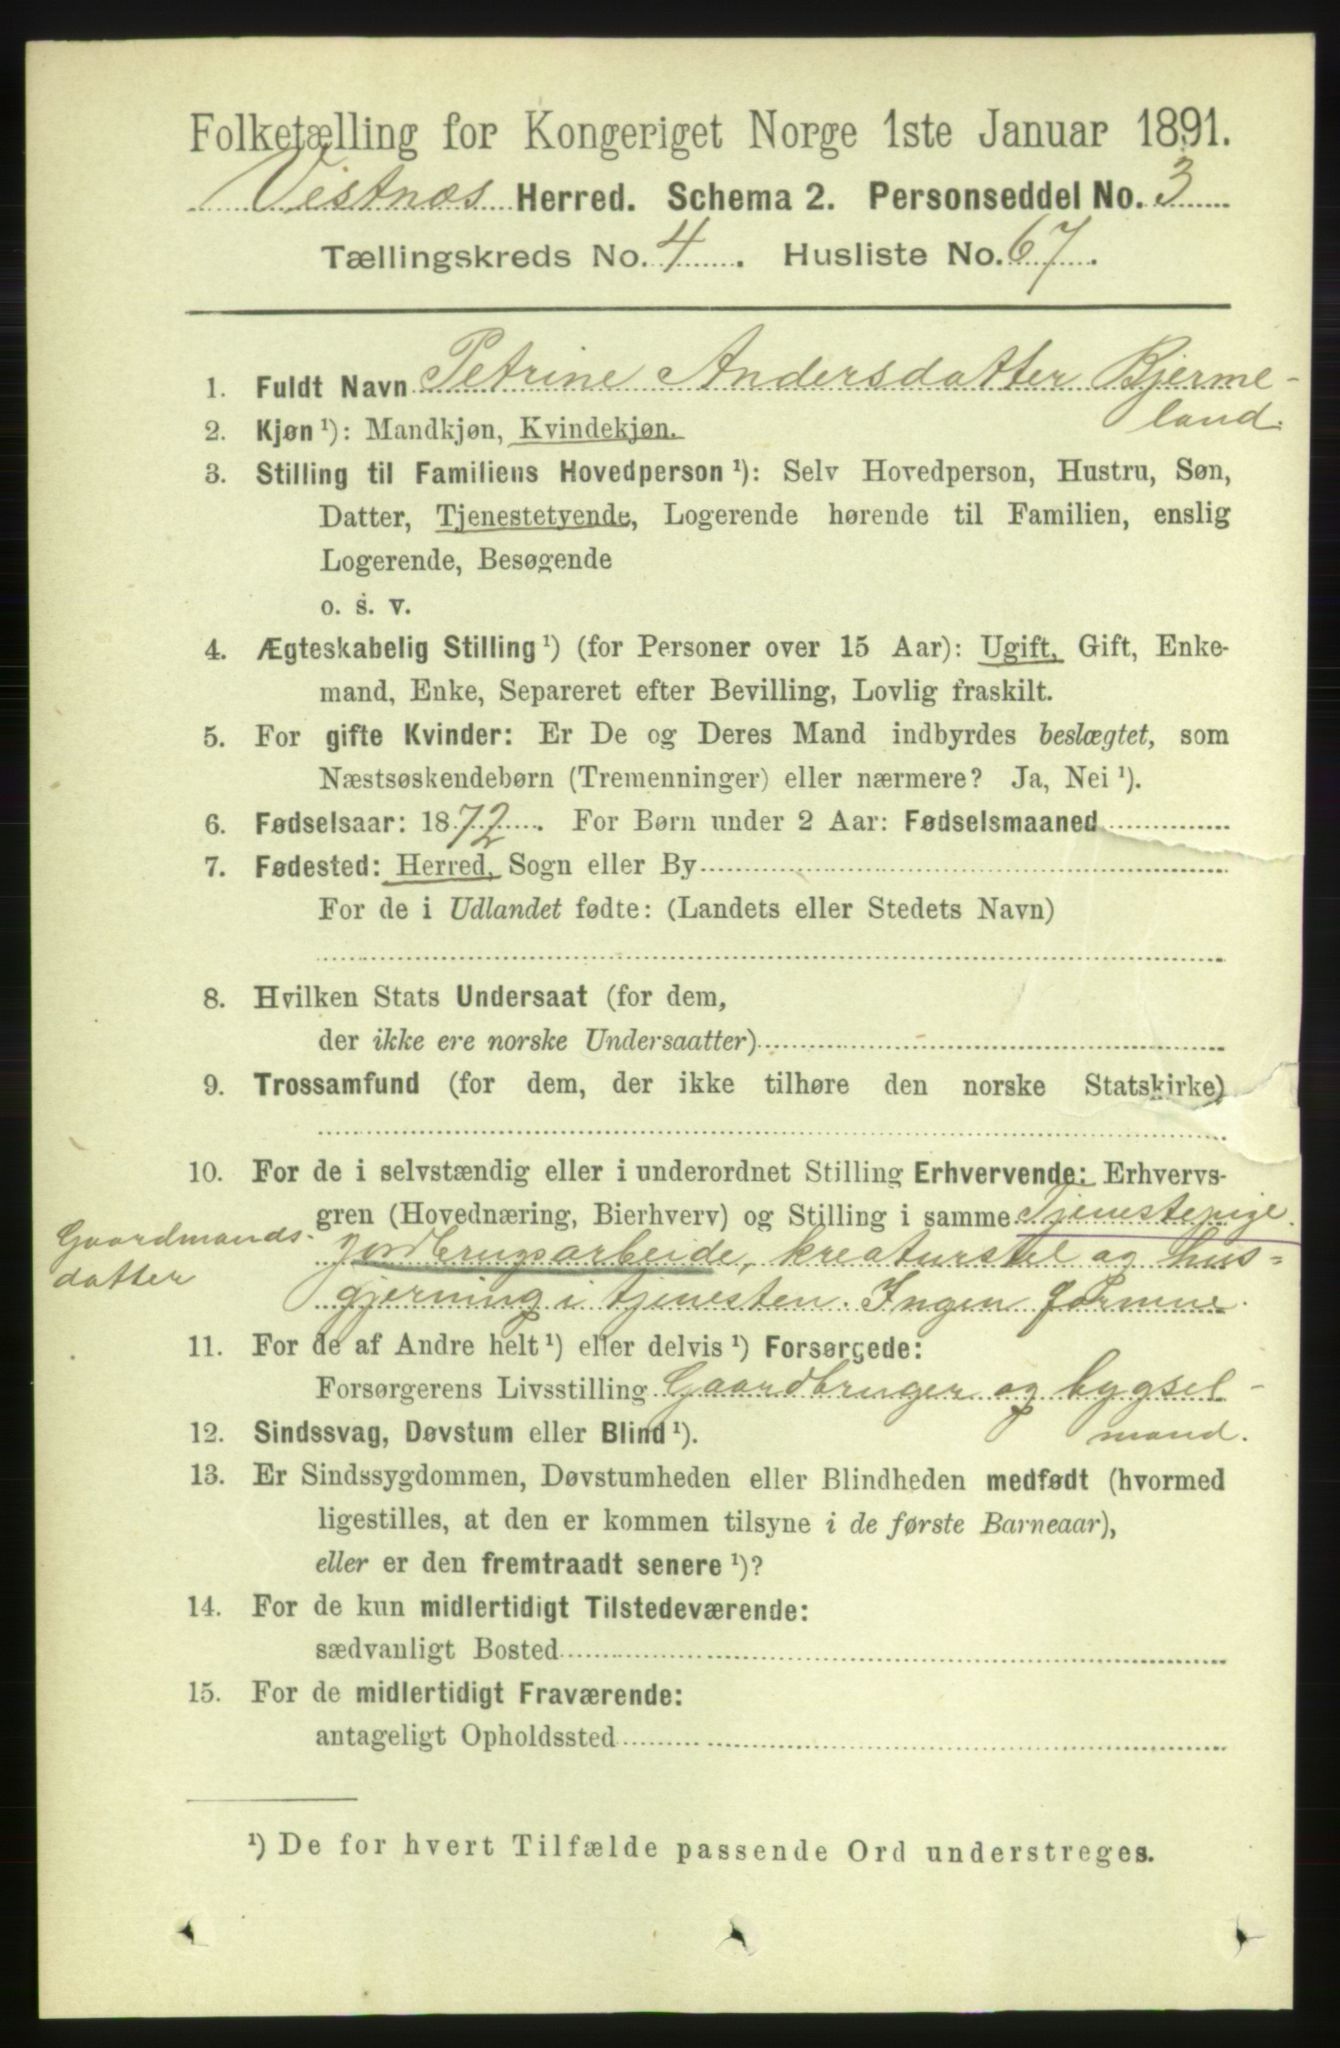 Folketælling for Kongeriget Norge 1ste Januar 1891.
Vestnæs Herred. Schema 2. Personseddel No. 3
Tællingskreds No. 4. Husliste No. 67.
1. Fuldt Navn Petrine Andersdatter Bjerme-
land.
2. Kjøn ¹): Mandkjøn, Kvindekjøn.
3. Stilling til Familiens Hovedperson ¹): Selv Hovedperson, Hustru, Søn,
Datter, Tjenestetyende, Logerende hørende til Familien, enslig
Logerende, Besøgende
o. s. v.
4. Ægteskabelig Stilling ¹) (for Personer over 15 Aar): Ugift, Gift, Enke-
mand, Enke, Separeret efter Bevilling, Lovlig fraskilt.
5. For gifte Kvinder: Er De og Deres Mand indbyrdes beslægtet, som
Næstsøskendebørn (Tremenninger) eller nærmere? Ja, Nei ¹).
6. Fødselsaar: 1872. For Børn under 2 Aar: Fødselsmaaned
7. Fødested: Herred, Sogn eller By
For de i Udlandet fødte: (Landets eller Stedets Navn)
8. Hvilken Stats Undersaat (for dem,
der ikke ere norske Undersaatter)
9. Trossamfund (for dem, der ikke tilhøre den norske Statskirke)
10. For de i selvstændig eller i underordnet Stilling Erhvervende: Erhvervs-
gren (Hovednæring, Bierhverv) og Stilling i samme Tjenestepige.
Gaardmands-
datter
jordbrugsarbeide, kreaturstel og hus-
gjerning i tjenesten. Ingen formue.
11. For de af Andre helt ¹) eller delvis ¹) Forsørgede:
Forsørgerens Livsstilling Gaardbruger og bygsel-
mand.
12. Sindssvag, Døvstum eller Blind ¹).
13. Er Sindssygdommen, Døvstumheden eller Blindheden medfødt (hvormed
ligestilles, at den er kommen tilsyne i de første Barneaar),
eller er den fremtraadt senere ¹)?
14. For de kun midlertidigt Tilstedeværende:
sædvanligt Bosted
15. For de midlertidigt Fraværende:
antageligt Opholdssted
¹) De for hvert Tilfælde passende Ord understreges.